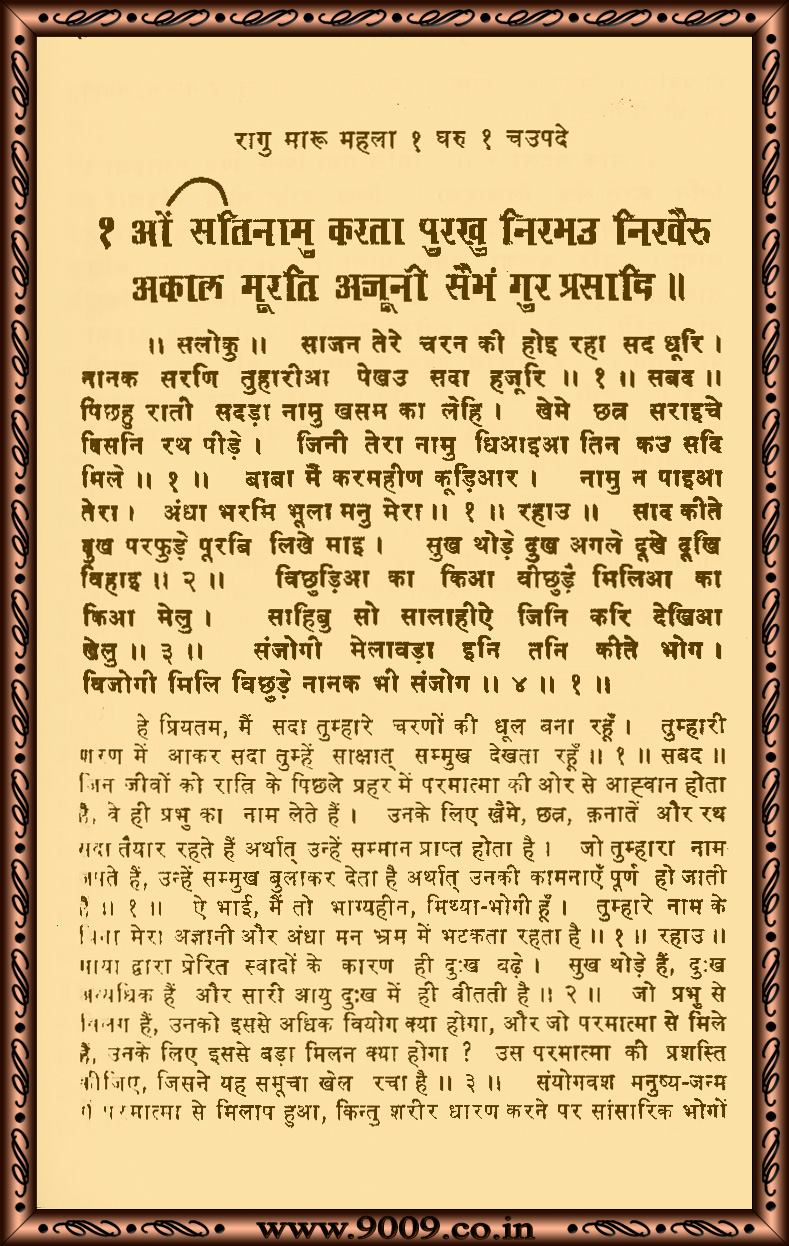 रागु मारू महला १ घरु १ चउपदे
१ ओं सतिनामु करता पुरखु निरभउ निरवैरु
अकाल मूरति अजूनी सैभं गुर प्रसादि ॥
॥ सलोकु ॥ साजन तेरे चरन की होइ रहा सद धूरि ।
नानक सरणि तुहारीआ पेखउ सदा हजूरि ॥ १ ॥ सबद ॥
पिछहु राती सदड़ा नामु खसम का लेहि । खेमे छत्र सराइचे
दिसनि रथ पीड़े । जिनी तेरा नामु धिआइआ तिन कउ सदि
मिले ॥ १ ॥ बाबा मैं करमहीण कूड़िआर । नामु न पाइआ
तेरा । अंधा भरमि भूला मनु मेरा ॥ १ ॥ रहाउ ॥ साद कीते
दुख परफुड़े पूरबि लिखे माइ । सुख थोड़े दुख अगले दूखे दूखि
विहाइ ॥ २ ॥ विछुड़िआ का किआ वीछुड़ै मिलिआ का
किआ मेलु । साहिबु सो सालाहीऐ जिनि करि देखिआ
खेलु ॥ ३ ॥ संजोगी मेलावड़ा इनि तनि कीते भोग ।
विजोगी मिलि विछुड़े नानक भी संजोग ॥ ४ ॥ १ ॥
हे प्रियतम, मैं सदा तुम्हारे चरणों की धूल बना रहूँ । तुम्हारी
शरण में आकर सदा तुम्हें साक्षात् सम्मुख देखता रहूँ ॥ १ ॥ सबद ॥
जिन जीवों को रात्रि के पिछले प्रहर में परमात्मा की ओर से आह्वान होता
है, वे ही प्रभु का नाम लेते हैं । उनके लिए खैमे, छत्र, क़नातें और रथ
सदा तैयार रहते हैं अर्थात् उन्हें सम्मान प्राप्त होता है । जो तुम्हारा नाम
जपते हैं, उन्हें सम्मुख बुलाकर देता है अर्थात् उनकी कामनाएँ पूर्ण हो जाती
है ॥ १ ॥ ऐ भाई, मैं तो भाग्यहीन, मिथ्या-भोगी हूँ । तुम्हारे नाम के
बिना मेरा अज्ञानी और अंधा मन भ्रम में भटकता रहता है ॥ १ ॥ रहाउ ॥
माया द्वारा प्रेरित स्वादों के कारण ही दुःख बढ़े । सुख थोड़े हैं, दुःख
अत्यधिक हैं और सारी आयु दुःख में ही बीतती है ॥ २ ॥ जो प्रभु से
विलग हैं, उनको इससे अधिक वियोग क्या होगा, और जो परमात्मा से मिले
हैं, उनके लिए इससे बड़ा मिलन क्या होगा ? उस परमात्मा की प्रशस्ति
कीजिए, जिसने यह समूचा खेल रचा है ॥ ३ ॥ संयोगवश मनुष्य-जन्म
में परमात्मा से मिलाप हुआ, किन्तु शरीर धारण करने पर सांसारिक भोगों
www.9009.co.in